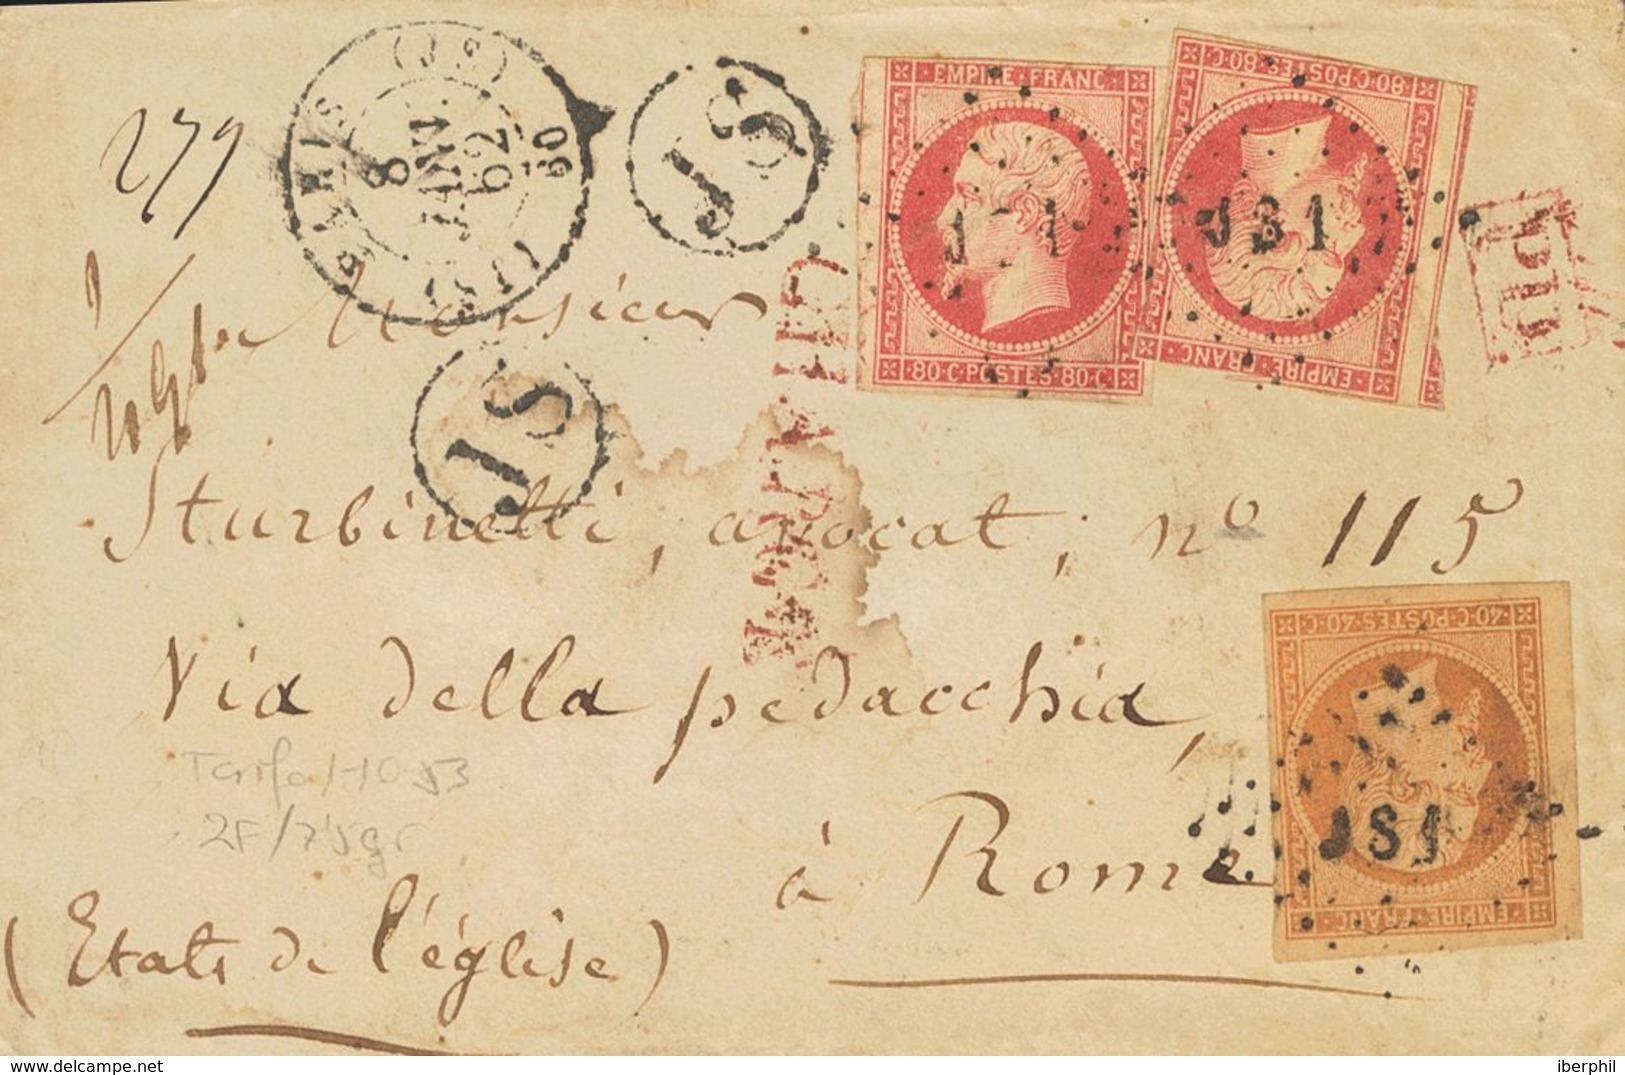 279
PARIS (JS)
8
JANV.
62
60
JS
JS
EMPIRE FRANC
80·C·POSTES·80·C
80·C·POSTES·80·C
EMPIRE FRANC
JS1
PD
Monsieur
Sturbinetti, avocat, nº 115
Via della pedacchia,
à Rome
(Etats de l'église)
40·C·POSTES·40·C
EMPIRE·FRANC
JS1
Tarifa 1-10-53
2F/7'5gr
iberphil